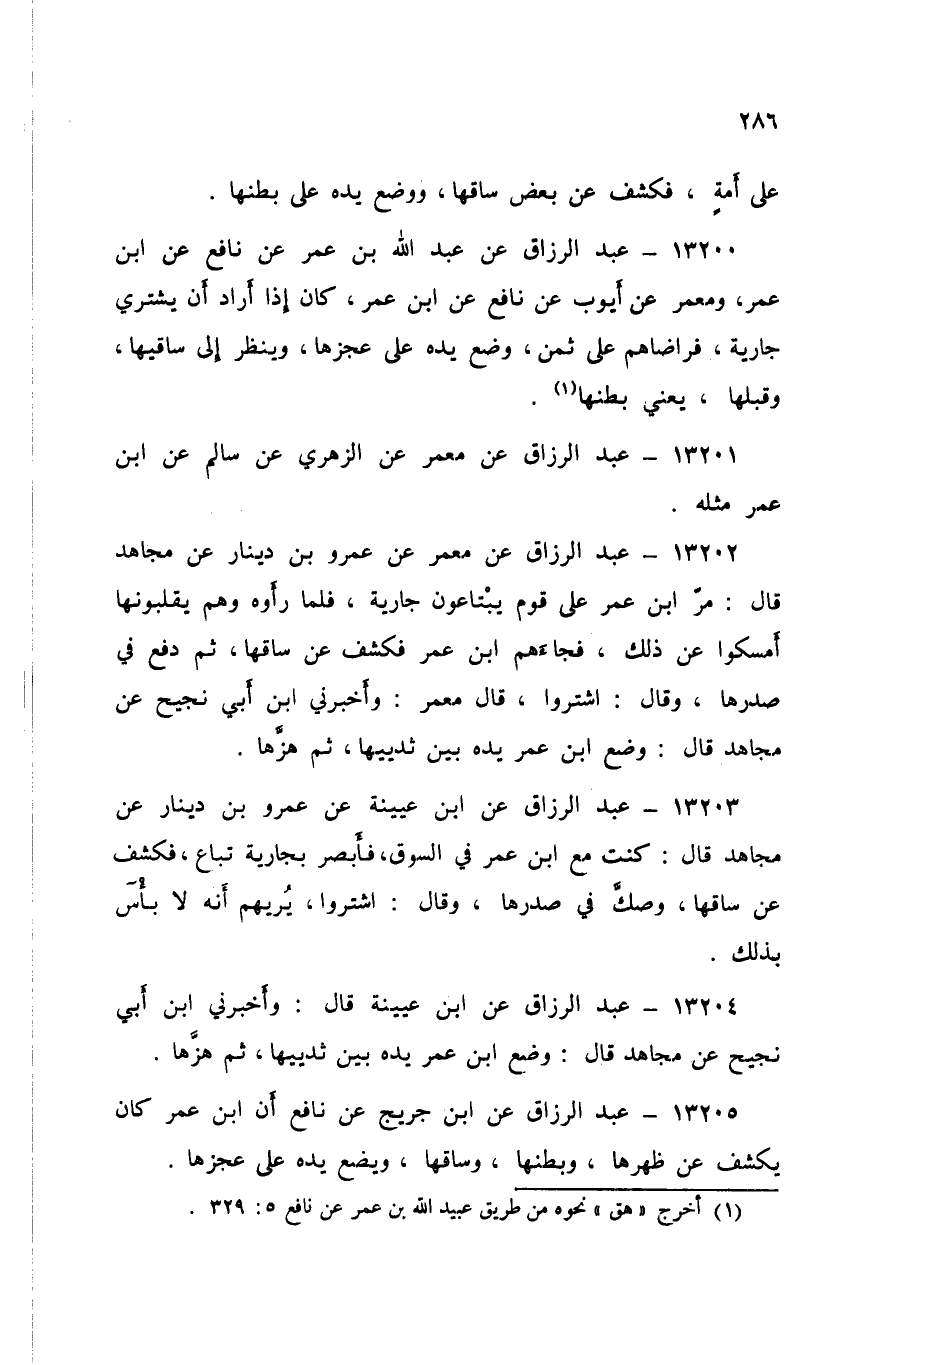 ٢٨٦
على أَمةٍ ، فكشف عن بعض ساقها ، ووضع يده على بطنها .
١٣٢٠٠ – عبد الرزاق عن عبد الله بن عمر عن نافع عن ابن
عمر ، ومعمر عن أَيوب عن نافع عن ابن عمر ، كان إذا أَراد أَن يشتري
جارية ، فراضاهم على ثمن ، وضع يده على عجزها ، وينظر إلى ساقيها ،
وقبلها ، يعني بطنها(١) .
١٣٢٠١ – عبد الرزاق عن معمر عن الزهري عن سالم عن ابن
عمر مثله .
١٣٢٠٢ – عبد الرزاق عن معمر عن عمرو بن دينار عن مجاهد
قال : مرّ ابن عمر على قوم يبْتاعون جارية ، فلما رأَوه وهم يقلبونها
أَمسكوا عن ذلك ، فجاءَهم ابن عمر فكشف عن ساقها ، ثم دفع في
صدرها ، وقال : اشتروا ، قال معمر : وأَخبرني ابن أَبي نجيح عن
مجاهد قال : وضع ابن عمر يده بين ثدييها ، ثم هزَّها .
١٣٢٠٣ – عبد الرزاق عن ابن عيينة عن عمرو بن دينار عن
مجاهد قال : كنت مع ابن عمر في السوق ، فأَبصر بجارية تباع ، فكشف
عن ساقها ، وصكَّ في صدرها ، وقال : اشتروا ، يُريهم أَنه لا بأْسَ
بذلك .
١٣٢٠٤ – عبد الرزاق عن ابن عيينة قال : وأَخبرني ابن أَبي
نجيح عن مجاهد قال : وضع ابن عمر يده بين ثدييها ، ثم هزَّها .
١٣٢٠٥ – عبد الرزاق عن ابن جريج عن نافع أَن ابن عمر كان
يكشف عن ظهرها ، وبطنها ، وساقها ، ويضع يده على عجزها .
(١) أخرج « هق » نحوه من طريق عبيد الله بن عمر عن نافع ٥ : ٣٢٩ .